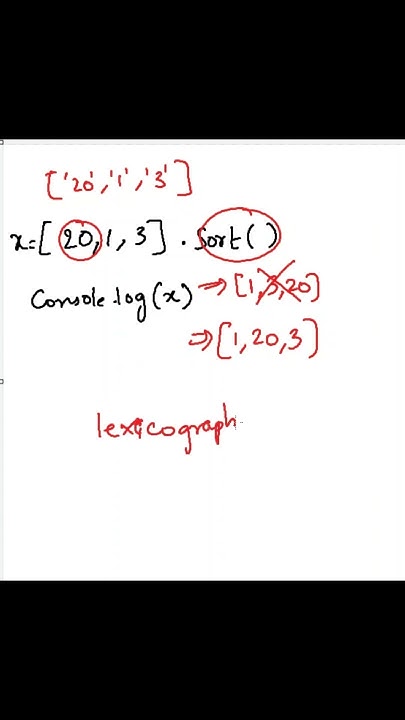 ['20','1','3']
x=[20,1,3].Sort()
Console.log(x) => [1,3,20]
=> [1,20,3]
lexicograph